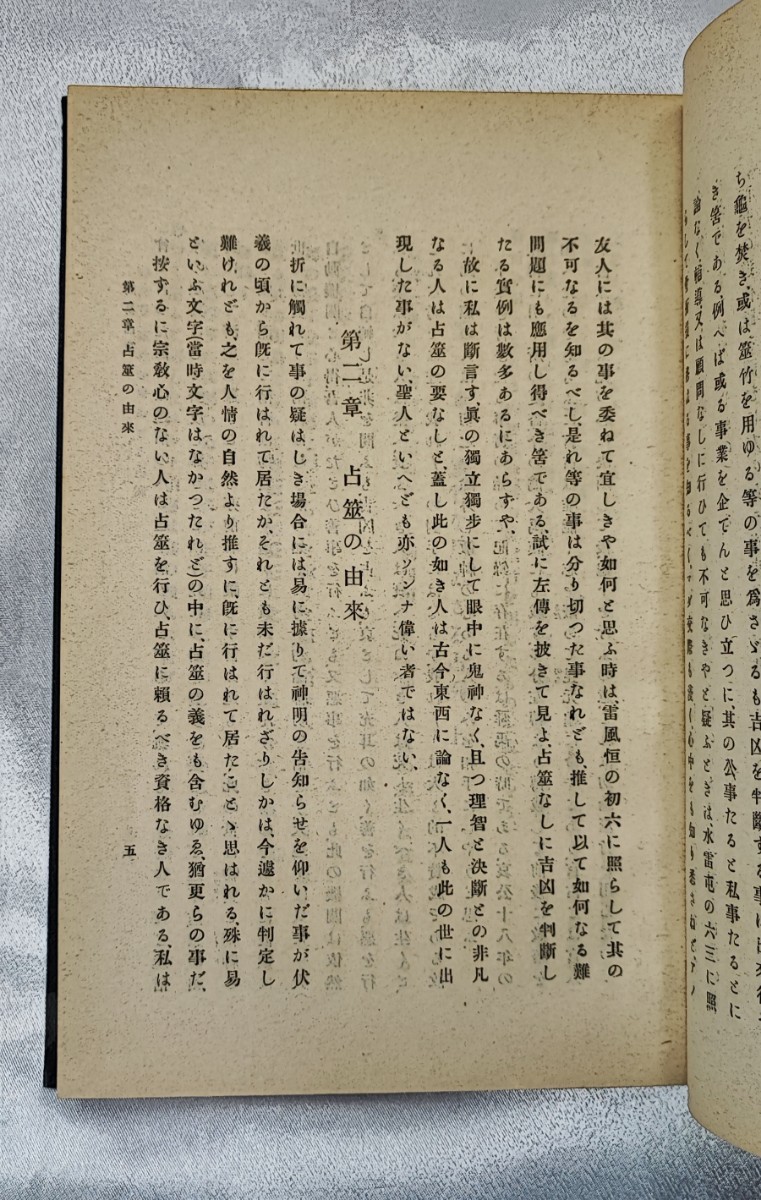 ち龜を焚き、或は筮竹を用ゆる等の事を爲さゞるも吉凶を判斷する事は出來得
き筈である、例へば或る事業を企でんと思ひ立つに、其の公事たると私事たるとに
論なく、補導又は顧問なしに行ひても不可なきやと疑ふときは、水雷屯の六三に照
友人には其の事を委ねて宜しきや如何と思ふ時は、雷風恒の初六に照らして其の
不可なるを知るべし、是れ等の事は分り切つた事なれども、推して以て如何なる難
問題にも應用し得べき筈である、試に左傳を披きて見よ、占筮なしに吉凶を判斷し
たる實例は數多あるにあらずや、
故に私は斷言す、眞の獨立獨步にして眼中に鬼神なく、且つ理智と決斷との非凡
なる人は占筮の要なしと、蓋し此の如き人は古今東西に論なく、一人も此の世に出
現した事がない、聖人といへども亦ソンナ偉い者ではない、
第二章 占筮の由來
折に觸れて事の疑はしき場合には、易に據りて神明の告知らせを仰いだ事が伏
羲の頃から旣に行はれて居たか、それとも未だ行はれざりしかは、今遽かに判定し
難けれども之を人情の自然より推すに、旣に行はれて居たことゝ思はれる、殊に易
といふ文字(當時文字はなかつたれど)の中に、占筮の義をも含むゆゑ、猶更らの事だ、
按するに宗敎心のない人は占筮を行ひ、占筮に賴るべき資格なき人である、私は
第二章 占筮の由來
五